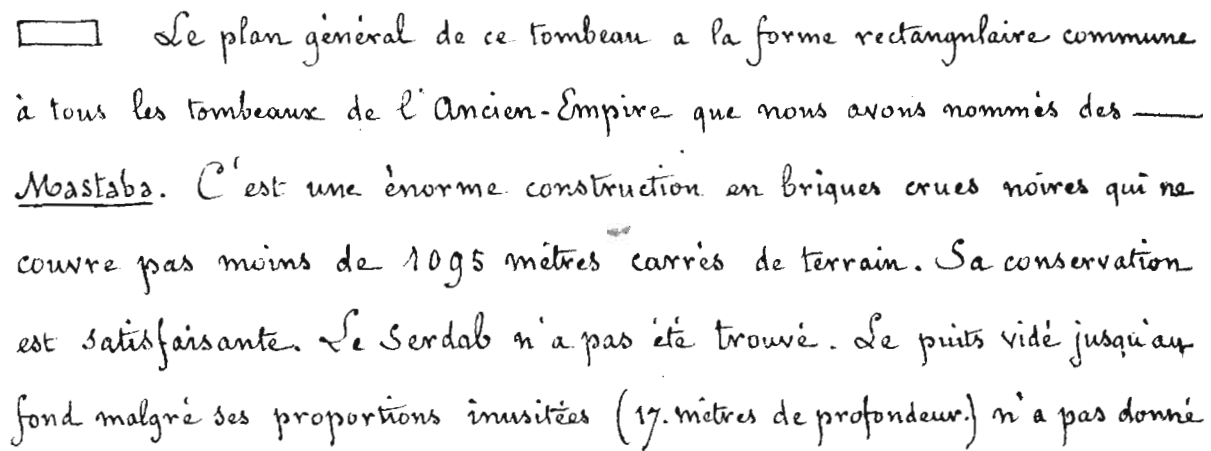 Le plan général de ce tombeau a la forme rectangulaire commune
à tous les tombeaux de l'Ancien-Empire que nous avons nommés des
Mastaba. C'est une énorme construction en briques crues noires qui ne
couvre pas moins de 1095 mètres carrés de terrain. Sa conservation
est satisfaisante. Le Serdab n'a pas été trouvé. Le puits vidé jusqu'au
fond malgré ses proportions inusitées (17. mètres de profondeur.) n'a pas donné